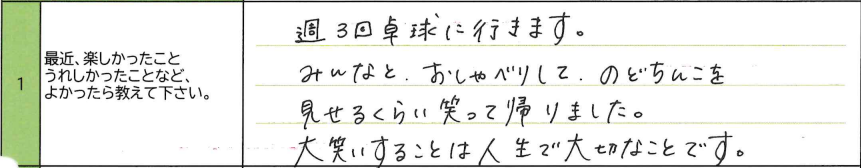 1
最近、楽しかったこと
うれしかったことなど、
よかったら教えて下さい。
週3回卓球に行きます。
みんなと、おしゃべりして、のどちんこを
見せるくらい笑って帰りました。
大笑いすることは人生で大切なことです。